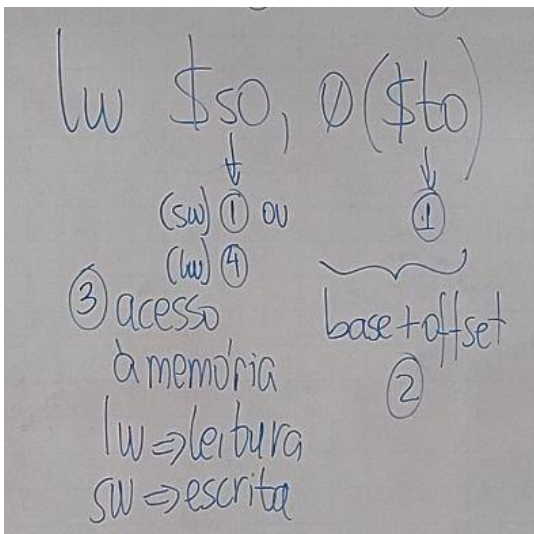 lw $s0, 0($t0)
(sw) 1 ou 1
(lw) 4
3 acesso
à memória
base + offset
2
lw => leitura
sw => escrita